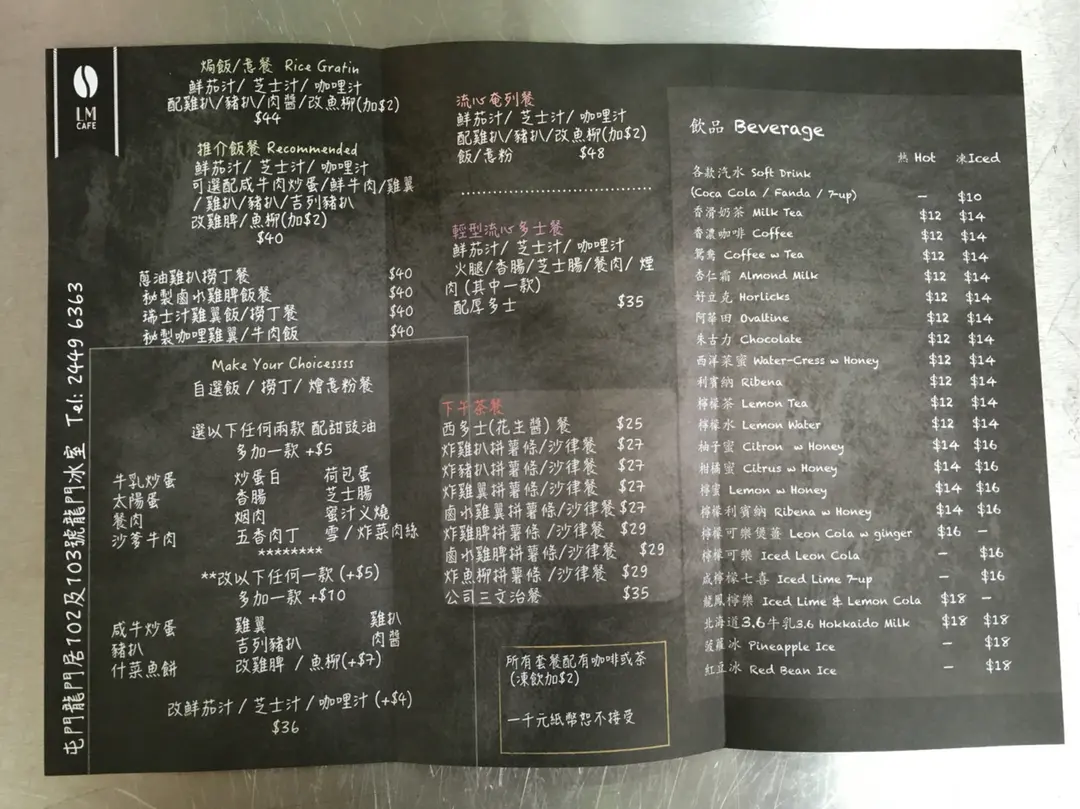 LM
CAFE
屯門龍門居102及103號龍門冰室 Tel: 2449 6363
焗飯/意餐 Rice Gratin
鮮茄汁/ 芝士汁/ 咖哩汁
配雞扒/豬扒/肉醬/改魚柳(加$2)
$44
推介飯餐 Recommended
鮮茄汁/ 芝士汁/ 咖哩汁
可選配咸牛肉炒蛋/鮮牛肉/雞翼
/ 雞扒/豬扒/吉列豬扒
改雞脾/魚柳(加$2)
$40
蔥油雞扒撈丁餐 $40
秘製鹵水雞脾飯餐 $40
瑞士汁雞翼飯/撈丁餐 $40
秘製咖哩雞翼/牛肉飯 $40
Make Your Choicessss
自選飯 / 撈丁/ 燴意粉餐
選以下任何兩款 配甜豉油
多加一款 +$5
牛乳炒蛋 炒蛋白 荷包蛋
太陽蛋 香腸 芝士腸
餐肉 烟肉 蜜汁叉燒
沙爹牛肉 五香肉丁 雪 / 炸菜肉絲
********
**改以下任何一款 (+$5)
多加一款 +$10
咸牛炒蛋 雞翼 雞扒
豬扒 吉列豬扒 肉醬
什菜魚餅 改雞脾 / 魚柳(+$7)
改鮮茄汁 / 芝士汁 / 咖哩汁 (+$4)
$36
流心奄列餐
鮮茄汁/ 芝士汁/ 咖哩汁
配雞扒/豬扒/改魚柳(加$2)
飯/意粉 $48
輕型流心多士餐
鮮茄汁/ 芝士汁/ 咖哩汁
火腿/香腸/芝士腸/餐肉/ 煙
肉 (其中一款)
配厚多士 $35
下午茶餐
西多士(花生醬) 餐 $25
炸雞扒拼薯條/沙律餐 $27
炸豬扒拼薯條/沙律餐 $27
炸雞翼拼薯條/沙律餐 $27
鹵水雞翼拼薯條/沙律餐 $27
炸雞脾拼薯條/沙律餐 $29
鹵水雞脾拼薯條/沙律餐 $29
炸魚柳拼薯條 /沙律餐 $29
公司三文治餐 $35
所有套餐配有咖啡或茶
(凍飲加$2)
一千元紙幣恕不接受
飲品 Beverage
熱 Hot 凍Iced
各款汽水 Soft Drink
(Coca Cola / Fanda / 7-up) — $10
香滑奶茶 Milk Tea $12 $14
香濃咖啡 Coffee $12 $14
鴛鴦 Coffee w Tea $12 $14
杏仁霜 Almond Milk $12 $14
好立克 Horlicks $12 $14
阿華田 Ovaltine $12 $14
朱古力 Chocolate $12 $14
西洋菜蜜 Water-Cress w Honey $12 $14
利賓納 Ribena $12 $14
檸檬茶 Lemon Tea $12 $14
檸檬水 Lemon Water $12 $14
柚子蜜 Citron w Honey $14 $16
柑橘蜜 Citrus w Honey $14 $16
檸蜜 Lemon w Honey $14 $16
檸檬利賓納 Ribena w Honey $14 $16
檸檬可樂煲薑 Leon Cola w ginger $16 —
檸檬可樂 Iced Leon Cola — $16
咸檸檬七喜 Iced Lime 7-up — $16
龍鳳檸樂 Iced Lime & Lemon Cola $18 —
北海道3.6牛乳3.6 Hokkaido Milk $18 $18
菠蘿冰 Pineapple Ice — $18
紅豆冰 Red Bean Ice — $18